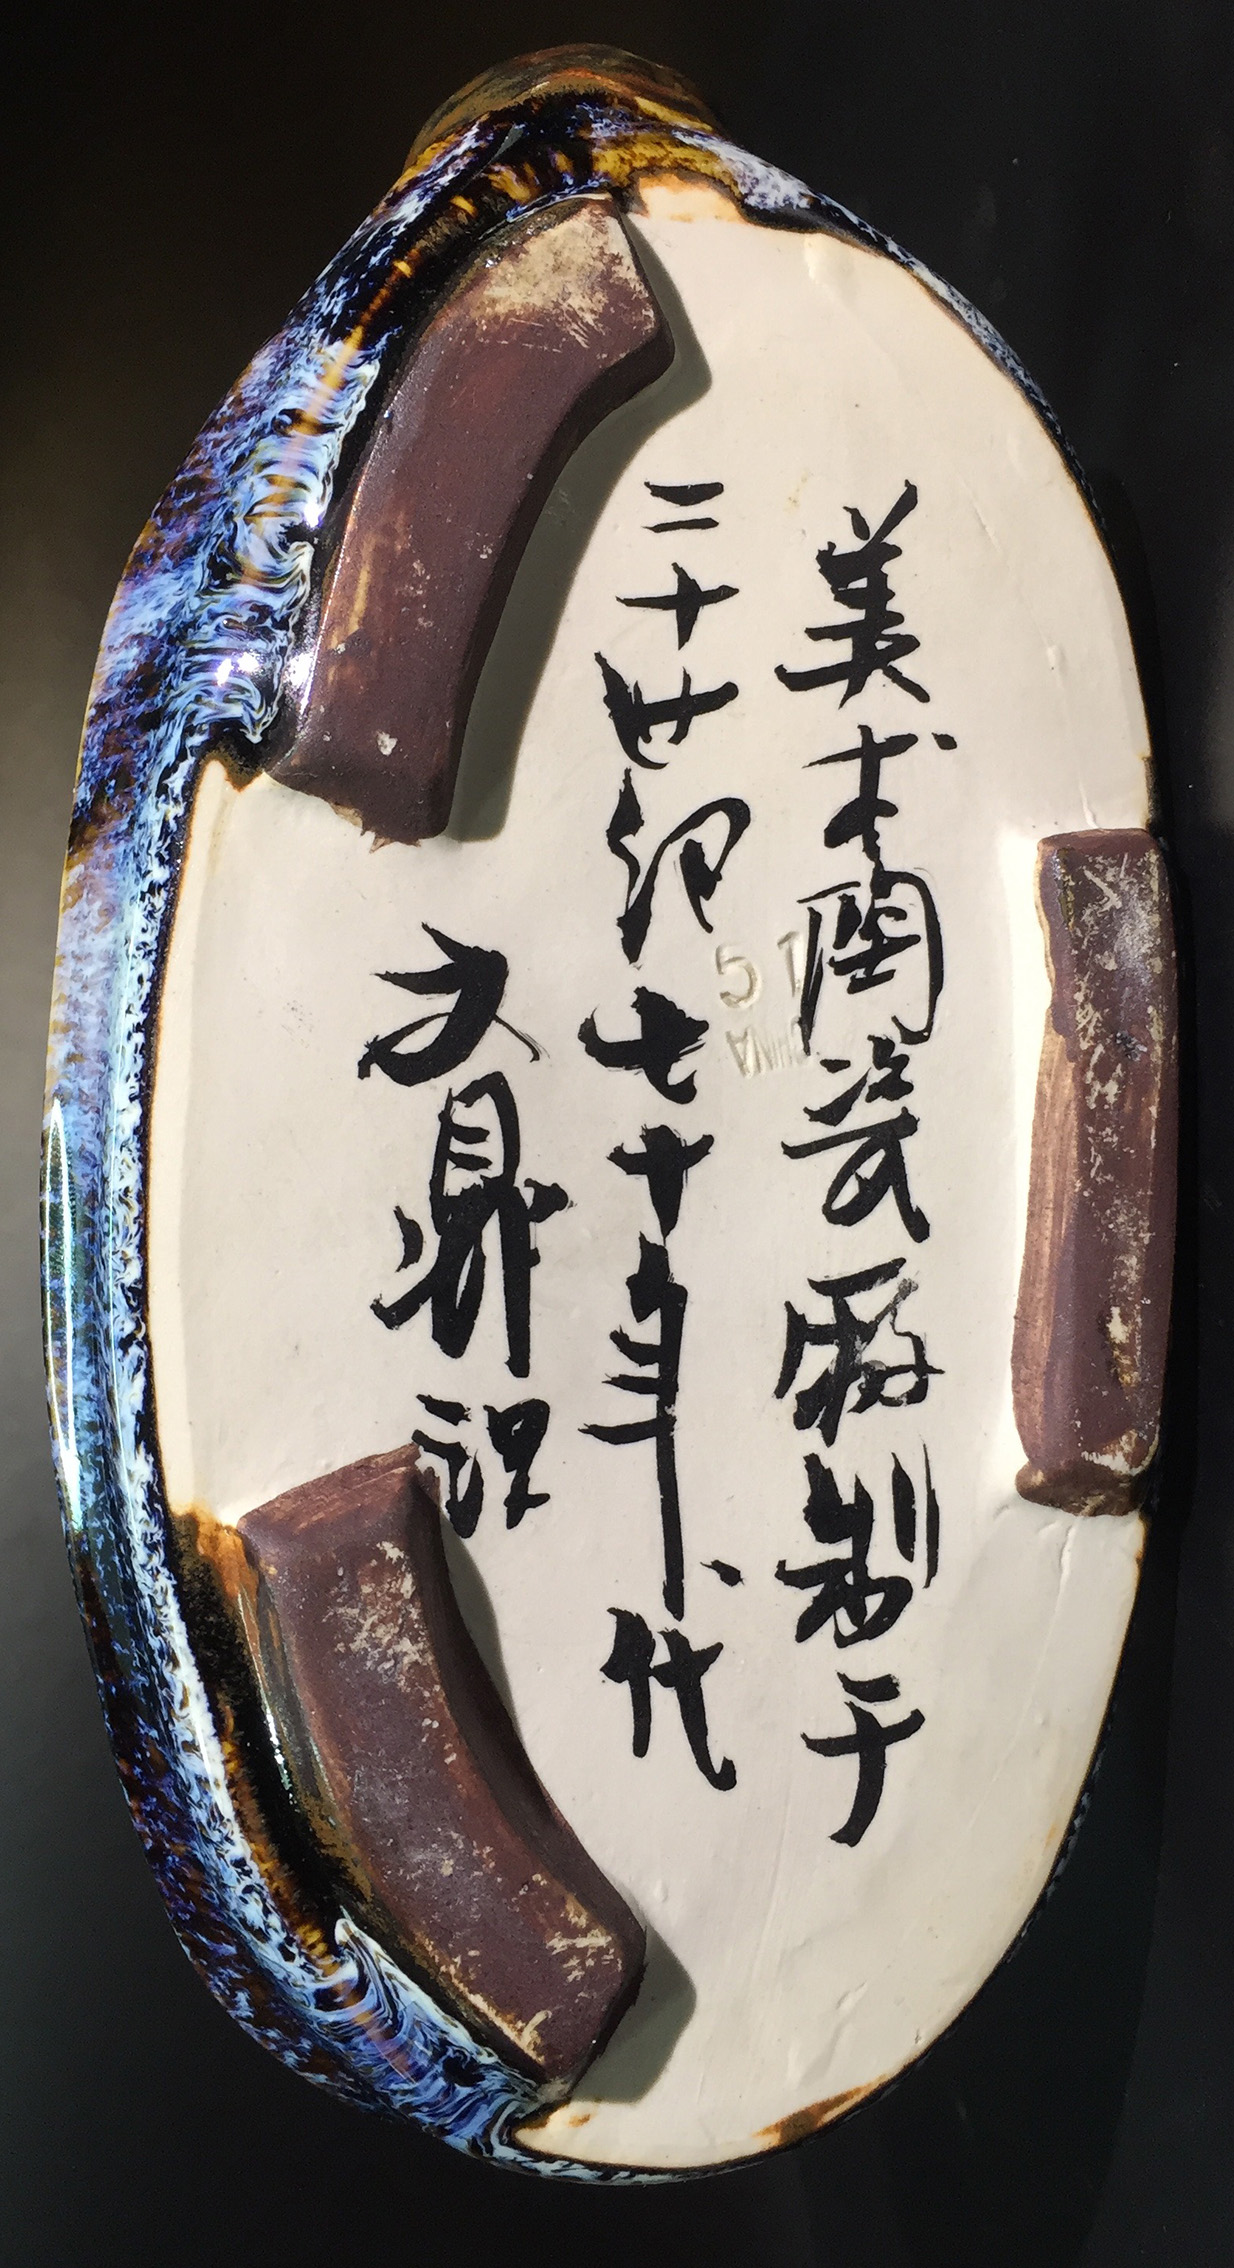 美术陶瓷厰制于
二十世纪七十年代
文鼎识
51
CHINA